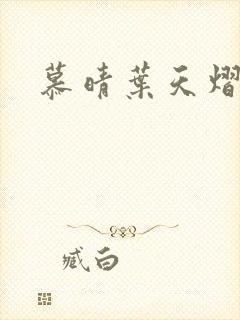 慕晴葉天熠
臧白